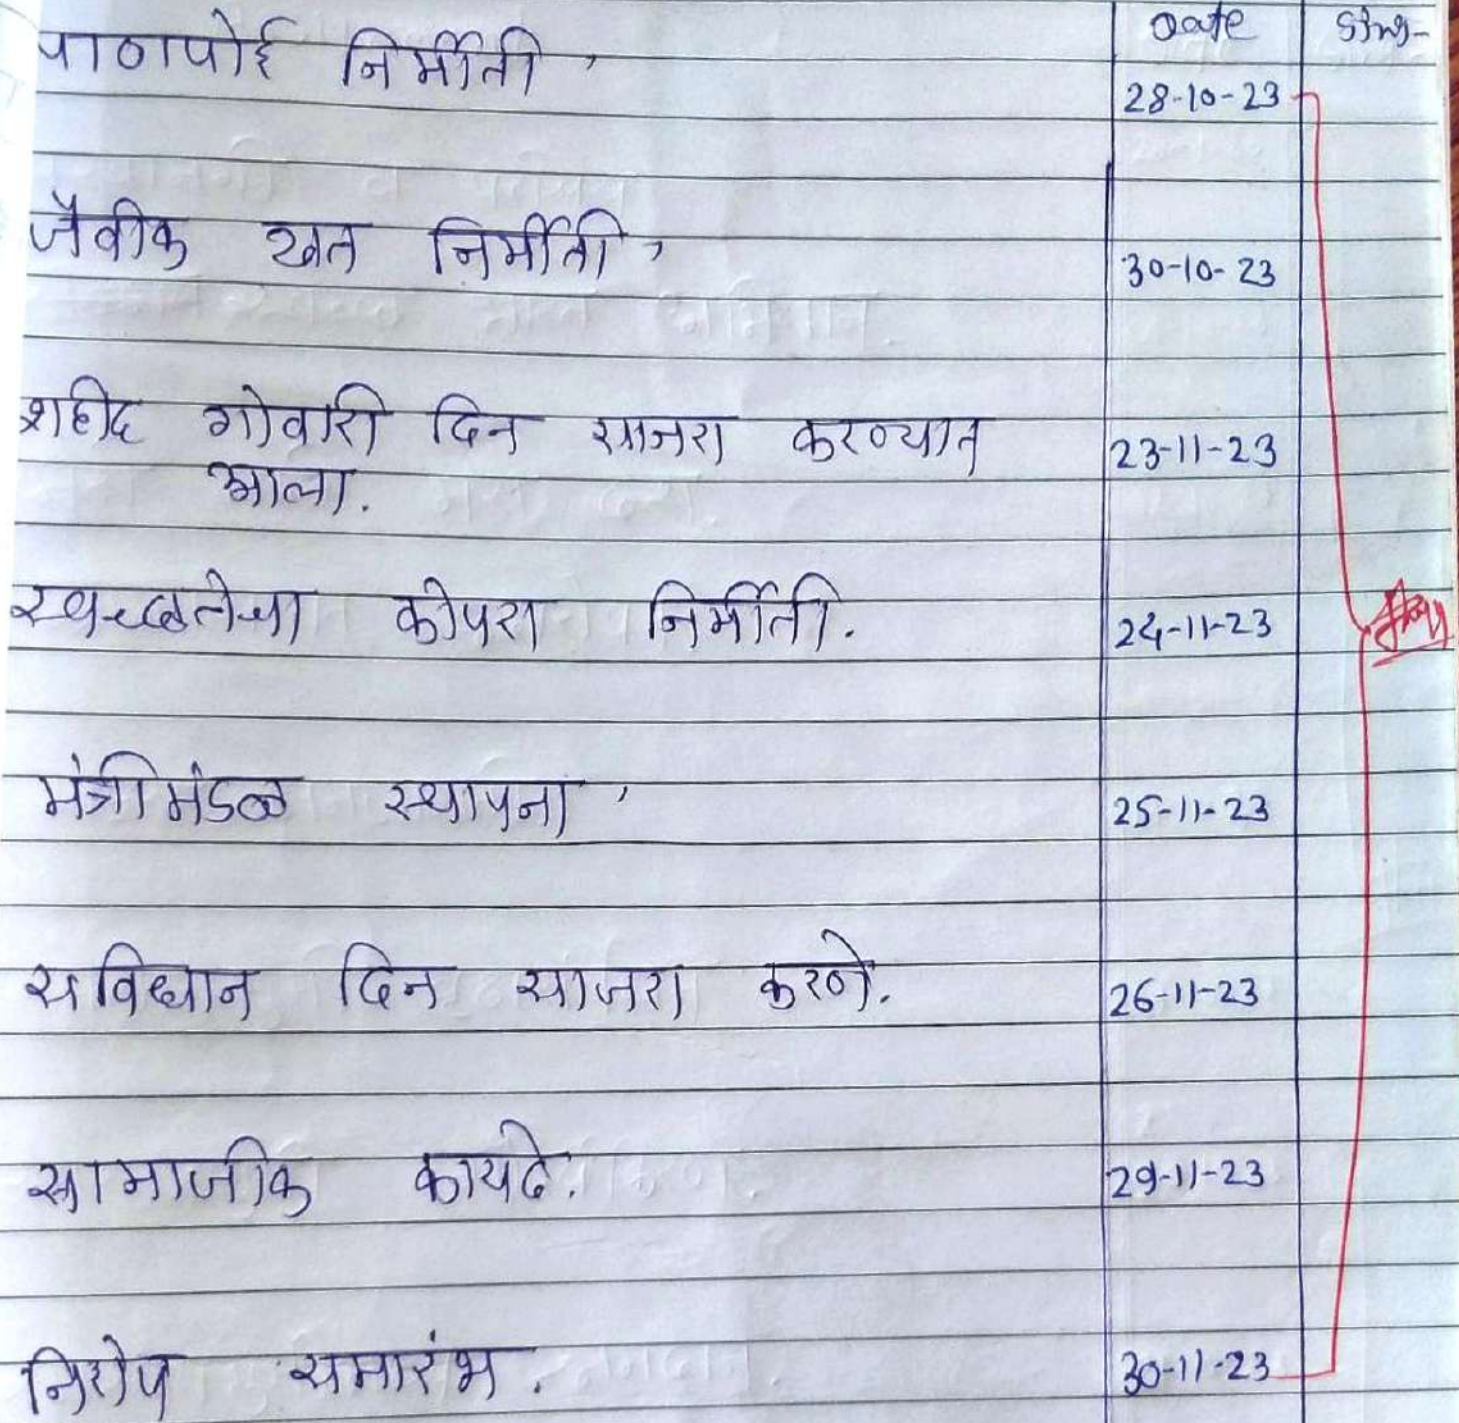 Date Sing-
पाणपोई निर्मीती, 28-10-23
जैवीक खत निर्मीती, 30-10-23
शहीद गोवारी दिन साजरा करण्यात 23-11-23
आला.
स्वच्छतेचा कोपरा निर्मीती. 24-11-23
मंत्रीमंडळ स्थापना, 25-11-23
सविधान दिन साजरा करणे. 26-11-23
सामाजीक कायदे. 29-11-23
निरोप समारंभ. 30-11-23